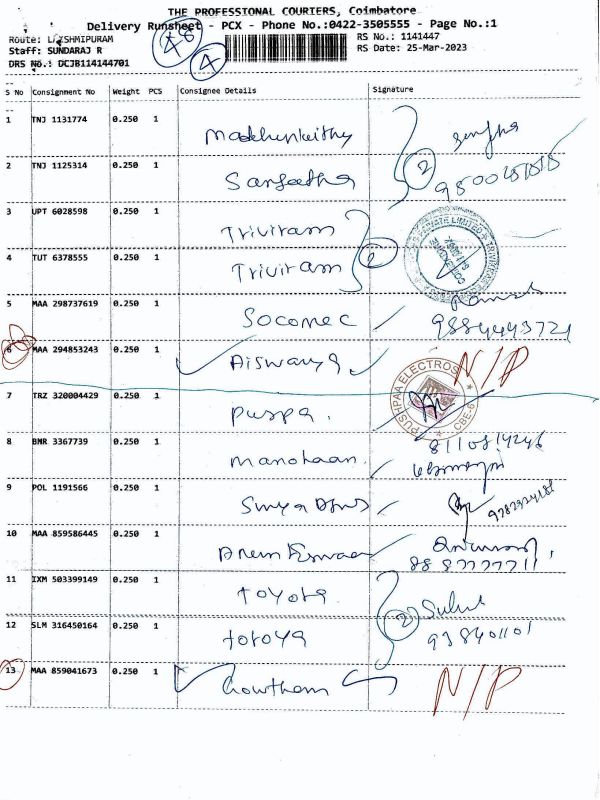 THE PROFESSIONAL COURIERS, Coimbatore
Delivery Runsheet - PCX - Phone No.:0422-3505555 - Page No.:1
Route: LAKSHMIPURAM RS No.: 1141447
Staff: SUNDARAJ R RS Date: 25-Mar-2023
DRS No.: DCJB114144701
48
4
S No Consignment No Weight PCS Consignee Details Signature
1 TNJ 1131774 0.250 1
2 TNJ 1125314 0.250 1 Sangeetha 2
3 UPT 6028598 0.250 1 Triviram
4 TUT 6378555 0.250 1 Triviram 2
5 MAA 298737619 0.250 1 Socomec 9884443721
6 MAA 294853243 0.250 1 Aiswarya N/P
7 TRZ 320004429 0.250 1 Puspa. PUSHPAA ELECTROS CBE-6
8 BNR 3367739 0.250 1 Manohaan
9 POL 1191566 0.250 1
10 MAA 859586445 0.250 1 8887777711
11 IXM 503399149 0.250 1 toyota
12 SLM 316450164 0.250 1 totoya 2
13 MAA 859041673 0.250 1 Gowtham N/P